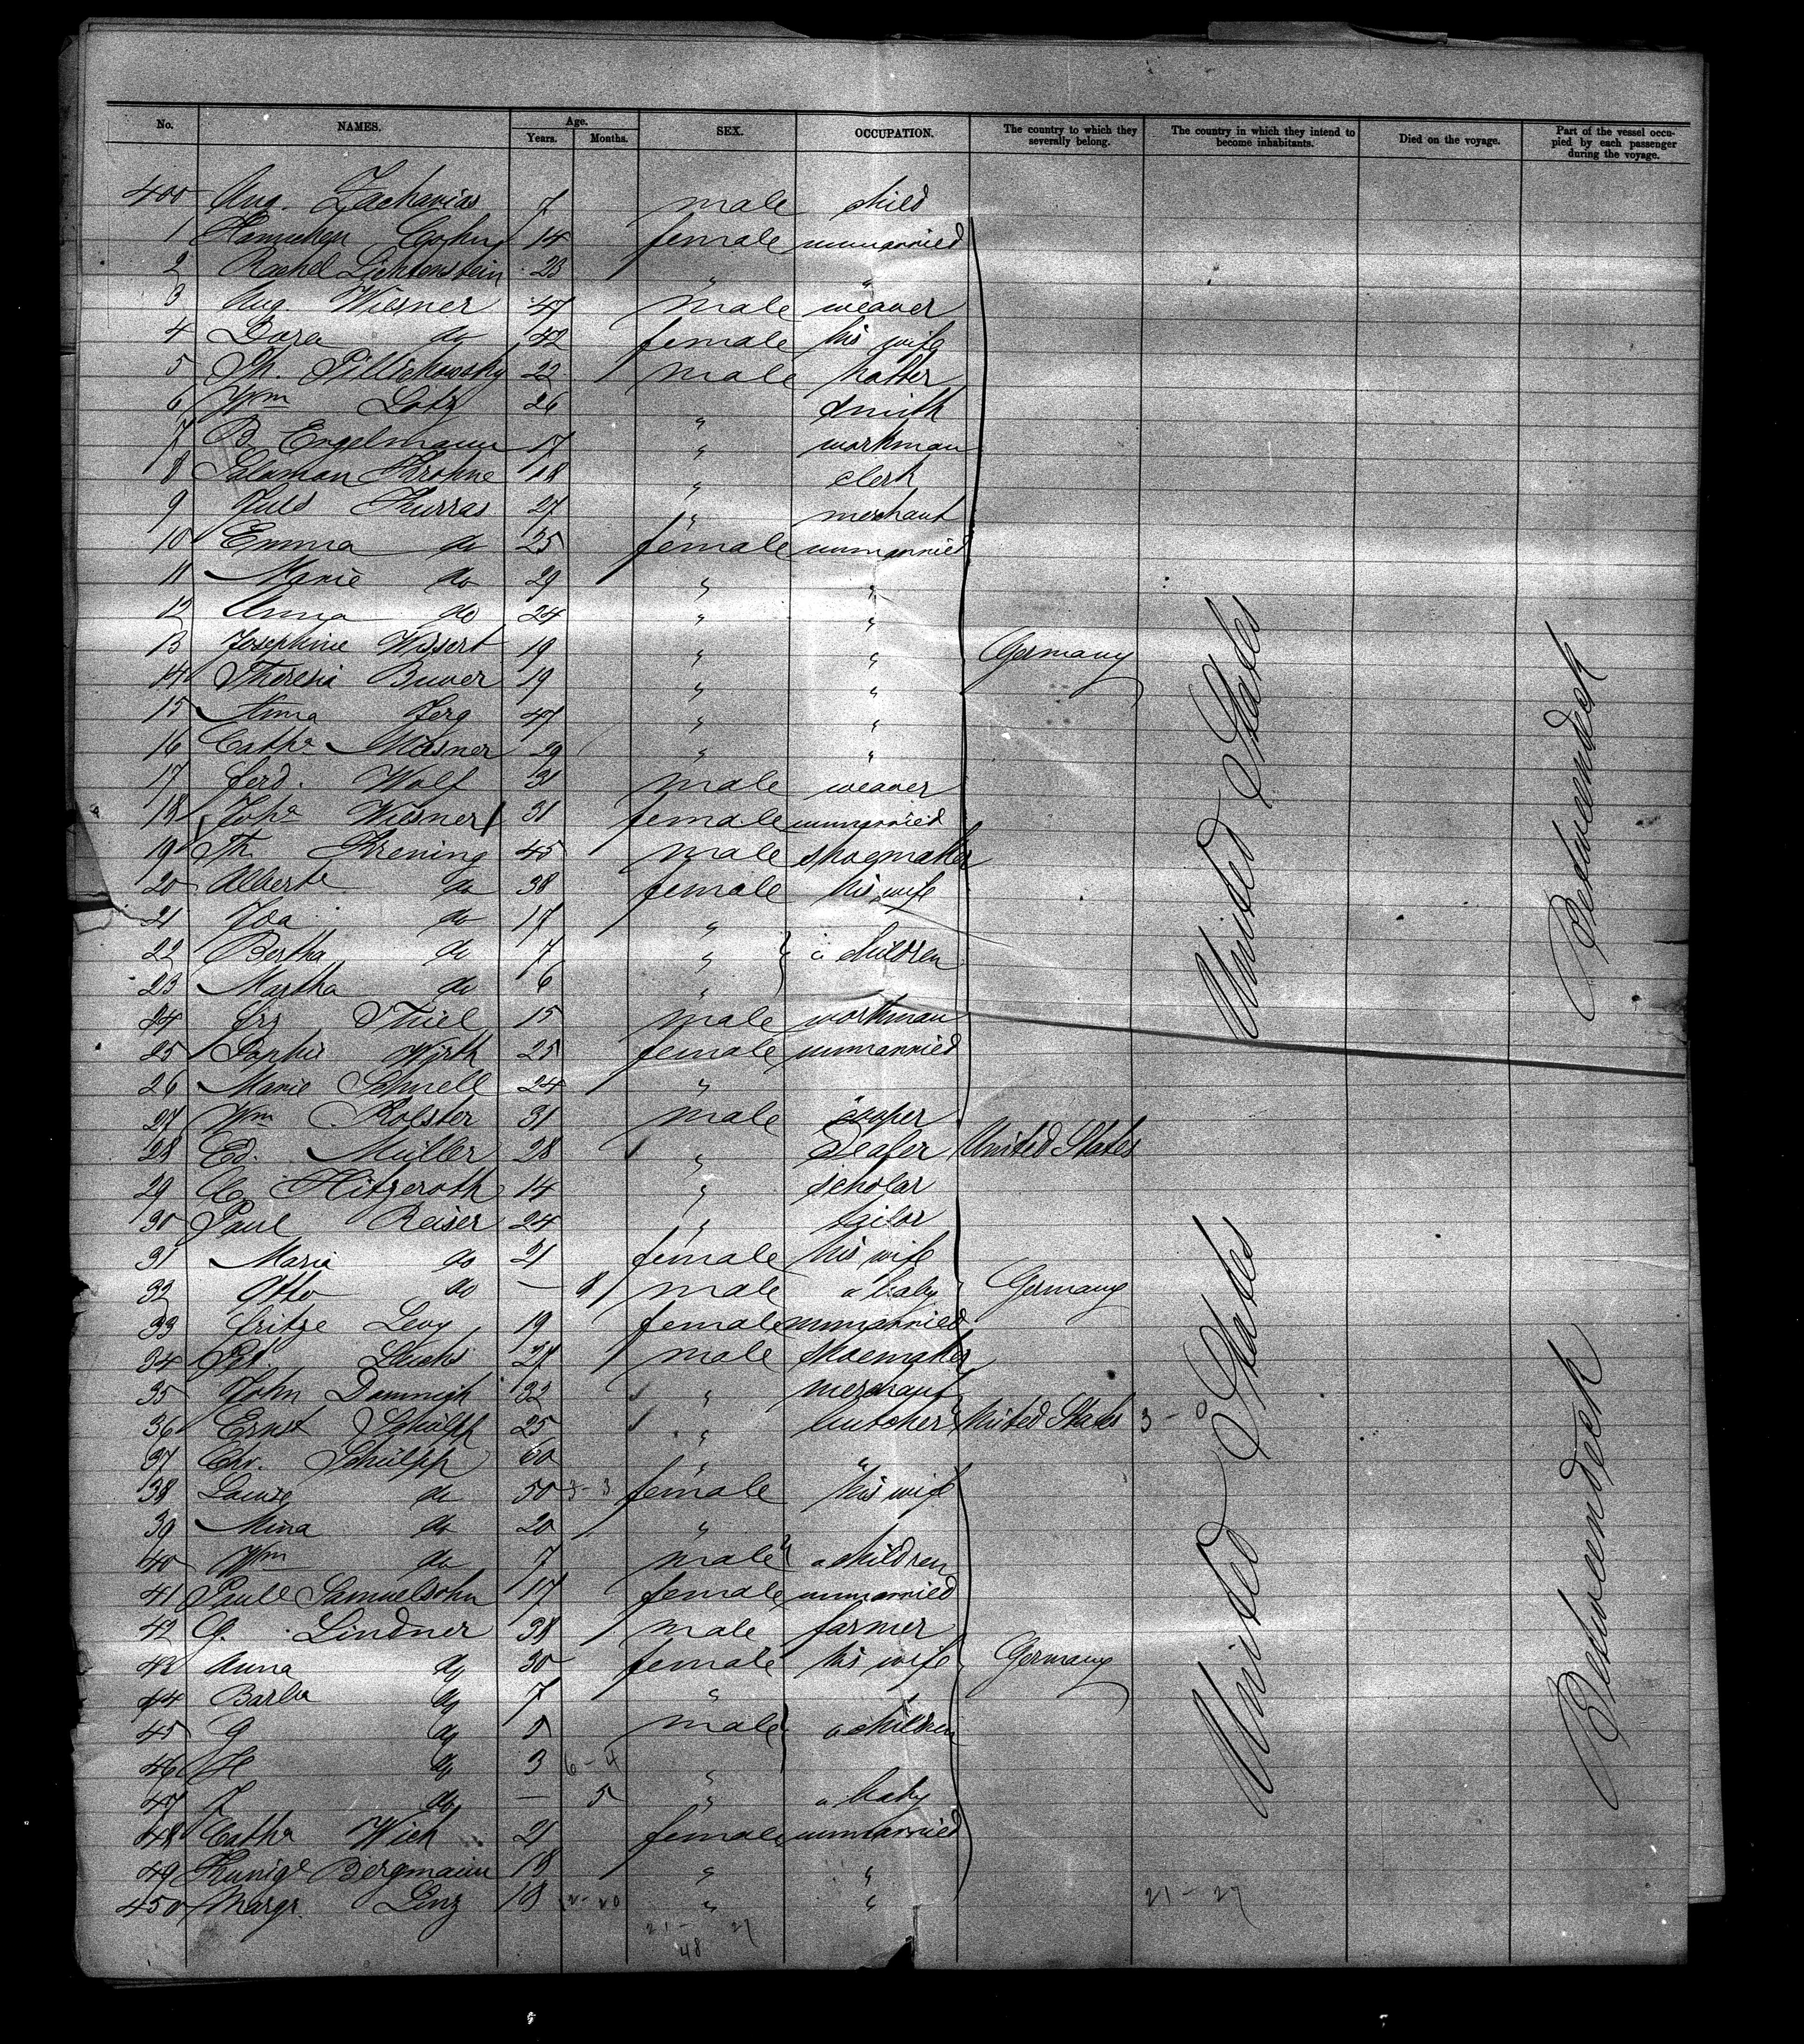 No. NAMES. Age. Years. Months. SEX. OCCUPATION. The country to which they severally belong. The country in which they intend to become inhabitants. Died on the voyage. Part of the vessel occupied by each passenger during the voyage.
400 Aug. Zacharias 7 male child
1 Hannchen Cohn 14 female unmarried
2 Rachel Lichtenstein 23 " "
3 Aug. Wiesner 47 male weaver
4 Dora do 42 female his wife
5 Th. Pillichowsky 22 male hatter
6 Wm Lotz 26 " smith
7 B. Engelmann 17 " workman
8 Salaman Krohne 18 " clerk
9 Juls Kurras 27 " merchant
10 Emma do 25 female unmarried
11 Marie do 29 " "
12 Anna do 24 " "
13 Josephine Wissert 19 " " Germany United States Betweendeck
14 Theresia Buwer 19 " "
15 Anna Jerg 47 " "
16 Catha 29 " "
17 Ferd. Wolf 31 male weaver
18 Joha Wiesner 31 female unmarried
19 Th. Krening 45 male shoemaker
20 Alberte do 38 female his wife
21 Ida do 17 "
22 Bertha do 7 " " children
23 Martha do 6 "
24 Frz Thiel 15 male workman
25 Sophie Wirth 25 female unmarried
26 Marie Schnell 24 "
27 Wm Rolster 31 male cooper
28 Ed. Müller 28 " dealer United States
29 C. Hitzeroth 14 " scholar
30 Paul Reiser 24 " tailor
31 Maria do 21 female his wife
32 Otto do — 8 male a baby Germany
33 Fritze Levy 19 female unmarried
34 Pet. Luchs 27 male shoemaker
35 John 32 " merchant
36 Ernst 25 " butcher United States 3 - 0 United States Betweendeck
37 Chr. Schülpp 60 " "
38 Louise do 50 3 - 3 female his wife
39 Mina do 20 "
40 Wm do 7 male " children
41 Paule Samuelsohn 17 female unmarried
42 G. Lindner 38 male farmer
43 Anna do 30 female his wife Germany
44 Barba do 7 "
45 G do 5 male " children
46 H do 3 6 - 4 "
47 J do — 5 " a baby
48 Catha Wich 21 female unmarried
49 Kunige Bergmann 18 " "
450 Margr. Linz 18 " "
21 - 27
21 - 27
48